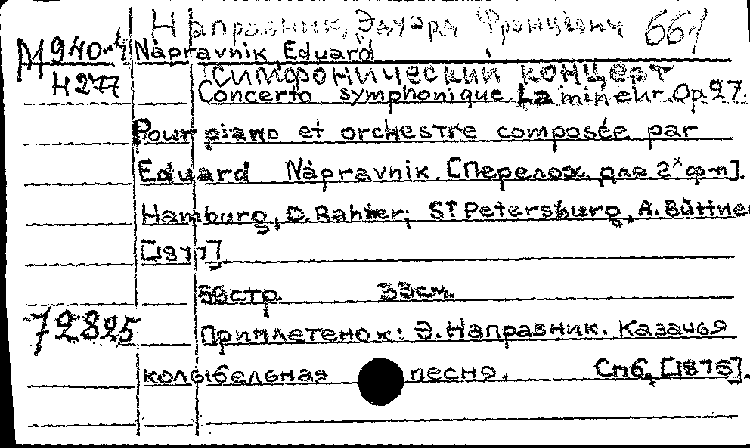 Направник, Эдуард Францевич 661
М 940-4 Nápravnik Eduard
Н 277 Симфонический концерт
Concerto symphonique La mineur Op 27.
Pour piano et orchestre composée par
Eduard Nápravnik. [Перелож. для 2х ф-п].
Hamburg, D. Rahter; St Petersburg, A. Büttner
[1877]
58стр. 33см.
72825 Приплетено к: Э. Направник. Казачья
колыбельная песня. Спб, [1876].